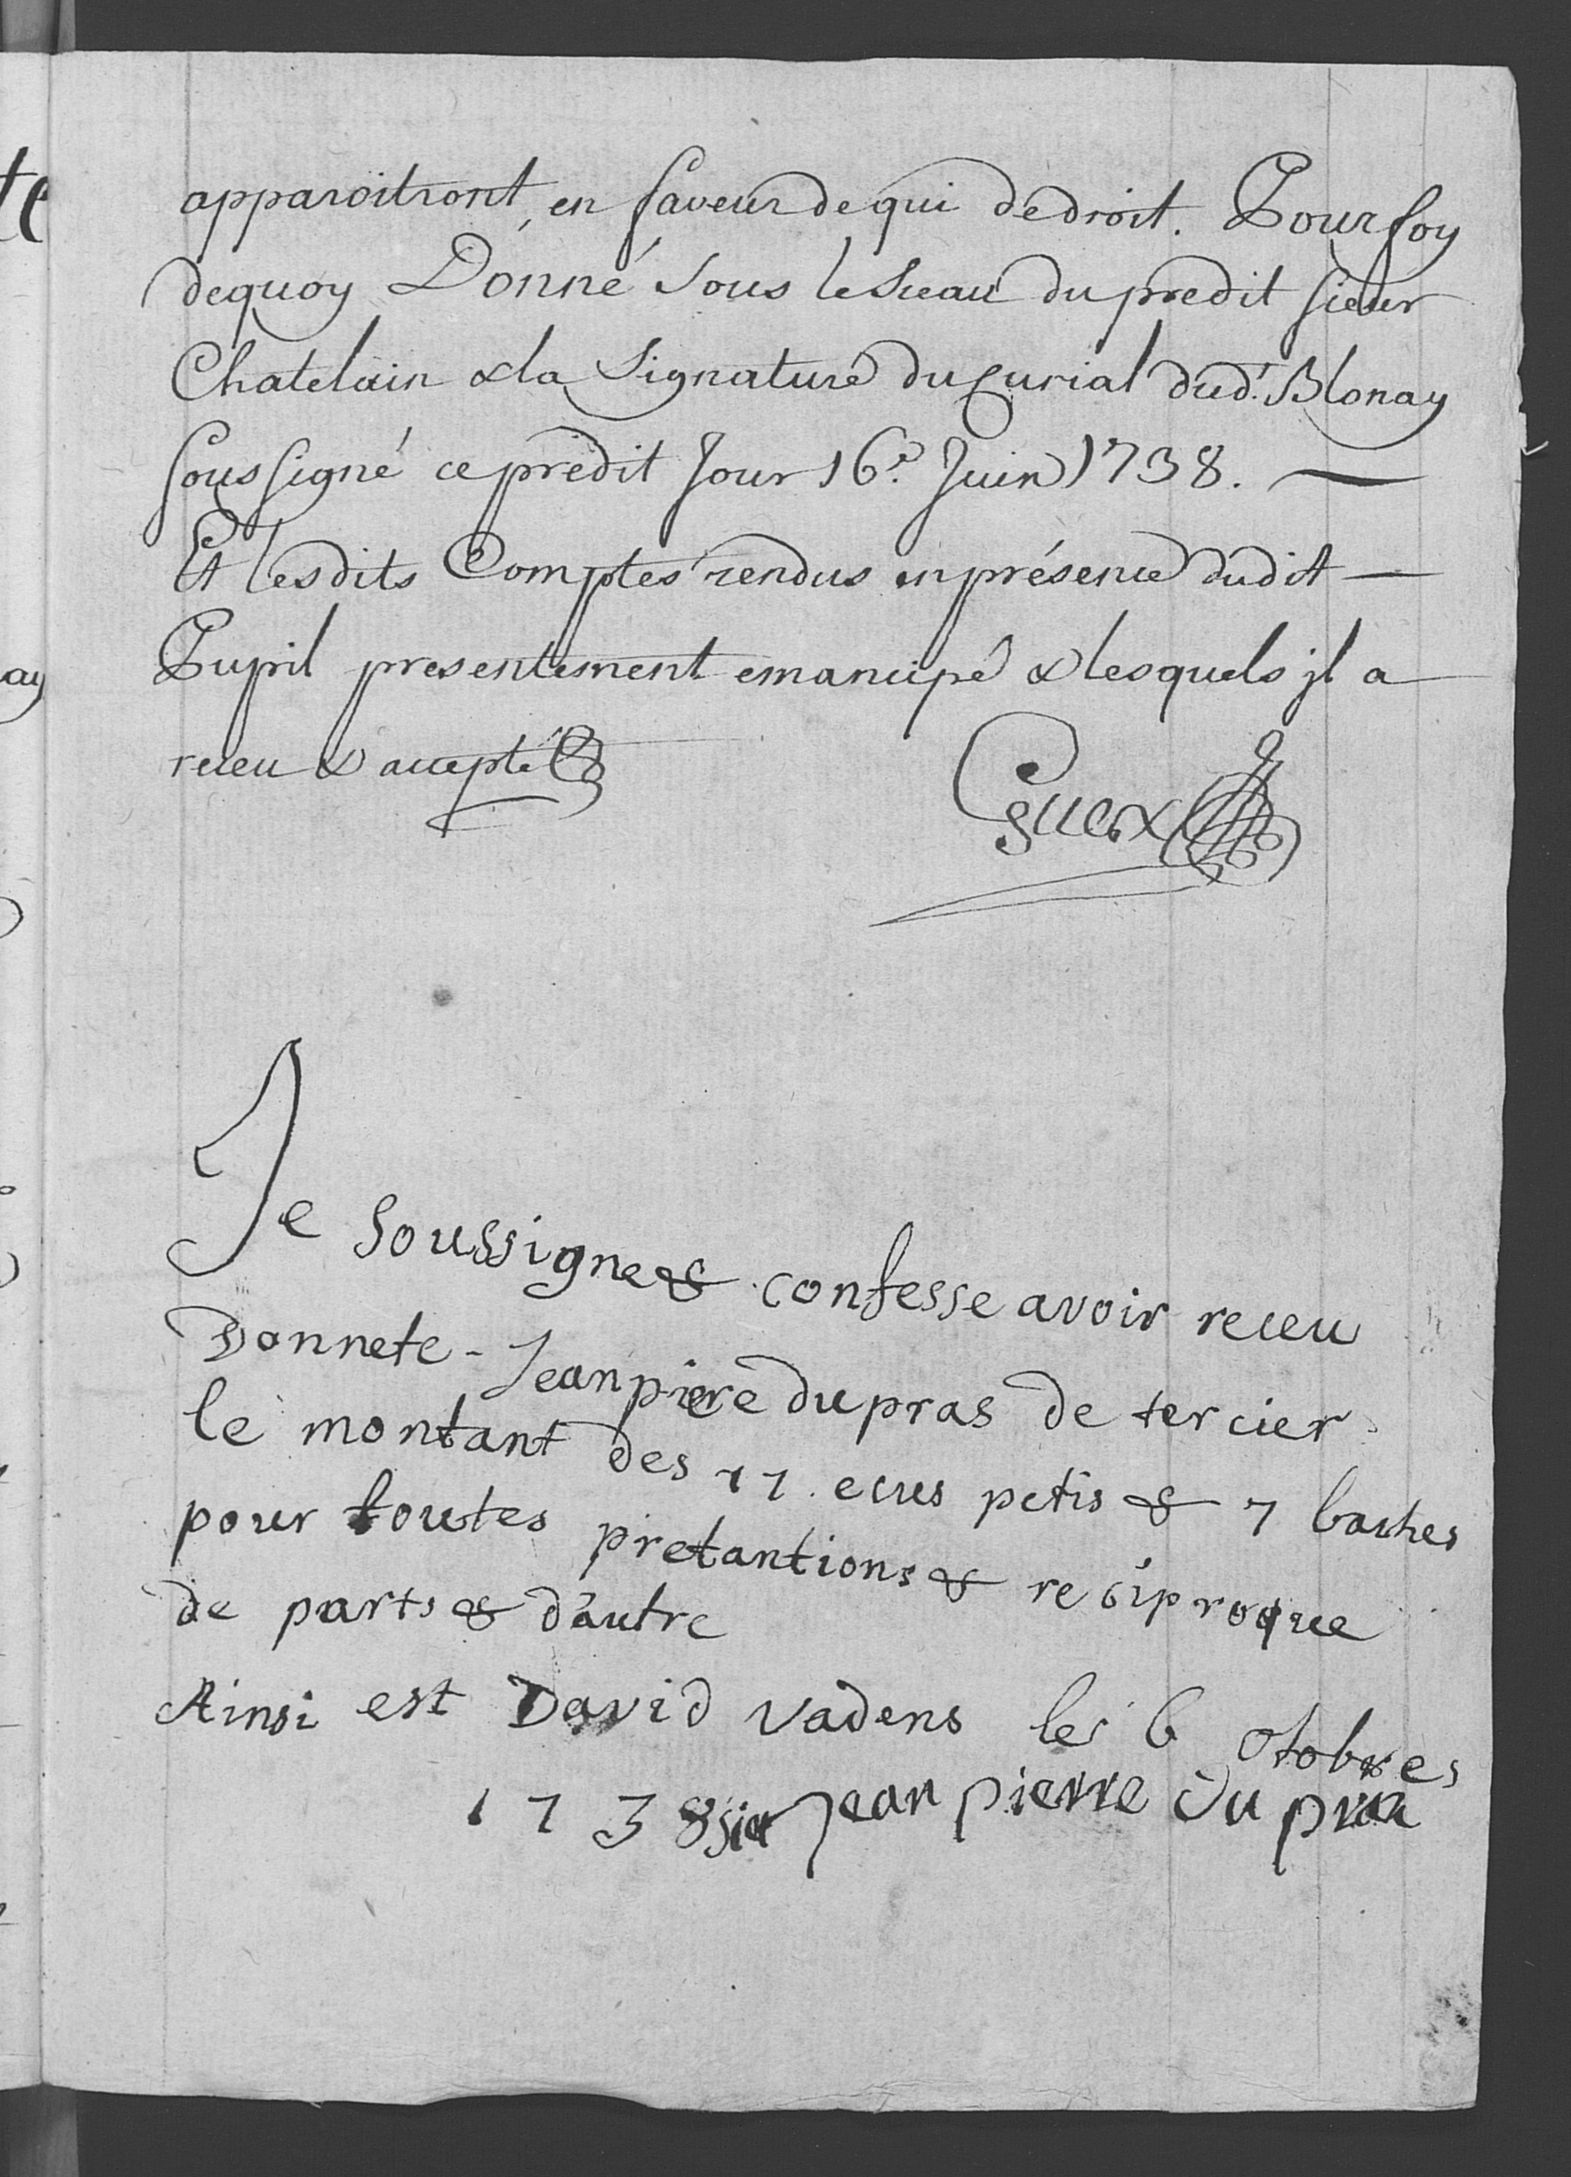 apparoitront, en faveur de qui de droit. Pour foy
dequoy Donné sous le Sceau du predit sieur
Chatelain & la Signature du Curial dud.t Blonay
soussigné ce predit Jour 16.e Juin 1738. —
Et lesdits Comptes rendus en présence dudit —
Pupil presentement emancipé & lesquels jl a
receu & accepté
Guex
Je soussignes & confesse avoir receu
Donnete - Jean piere dupras de tercier
le montant des 17 ecus petis & 7 baches
pour toutes pretantions & resiproque
de parts & d'autre
Ainsi est David vadens les 6 Otobres
1738 Jean pierre du pra